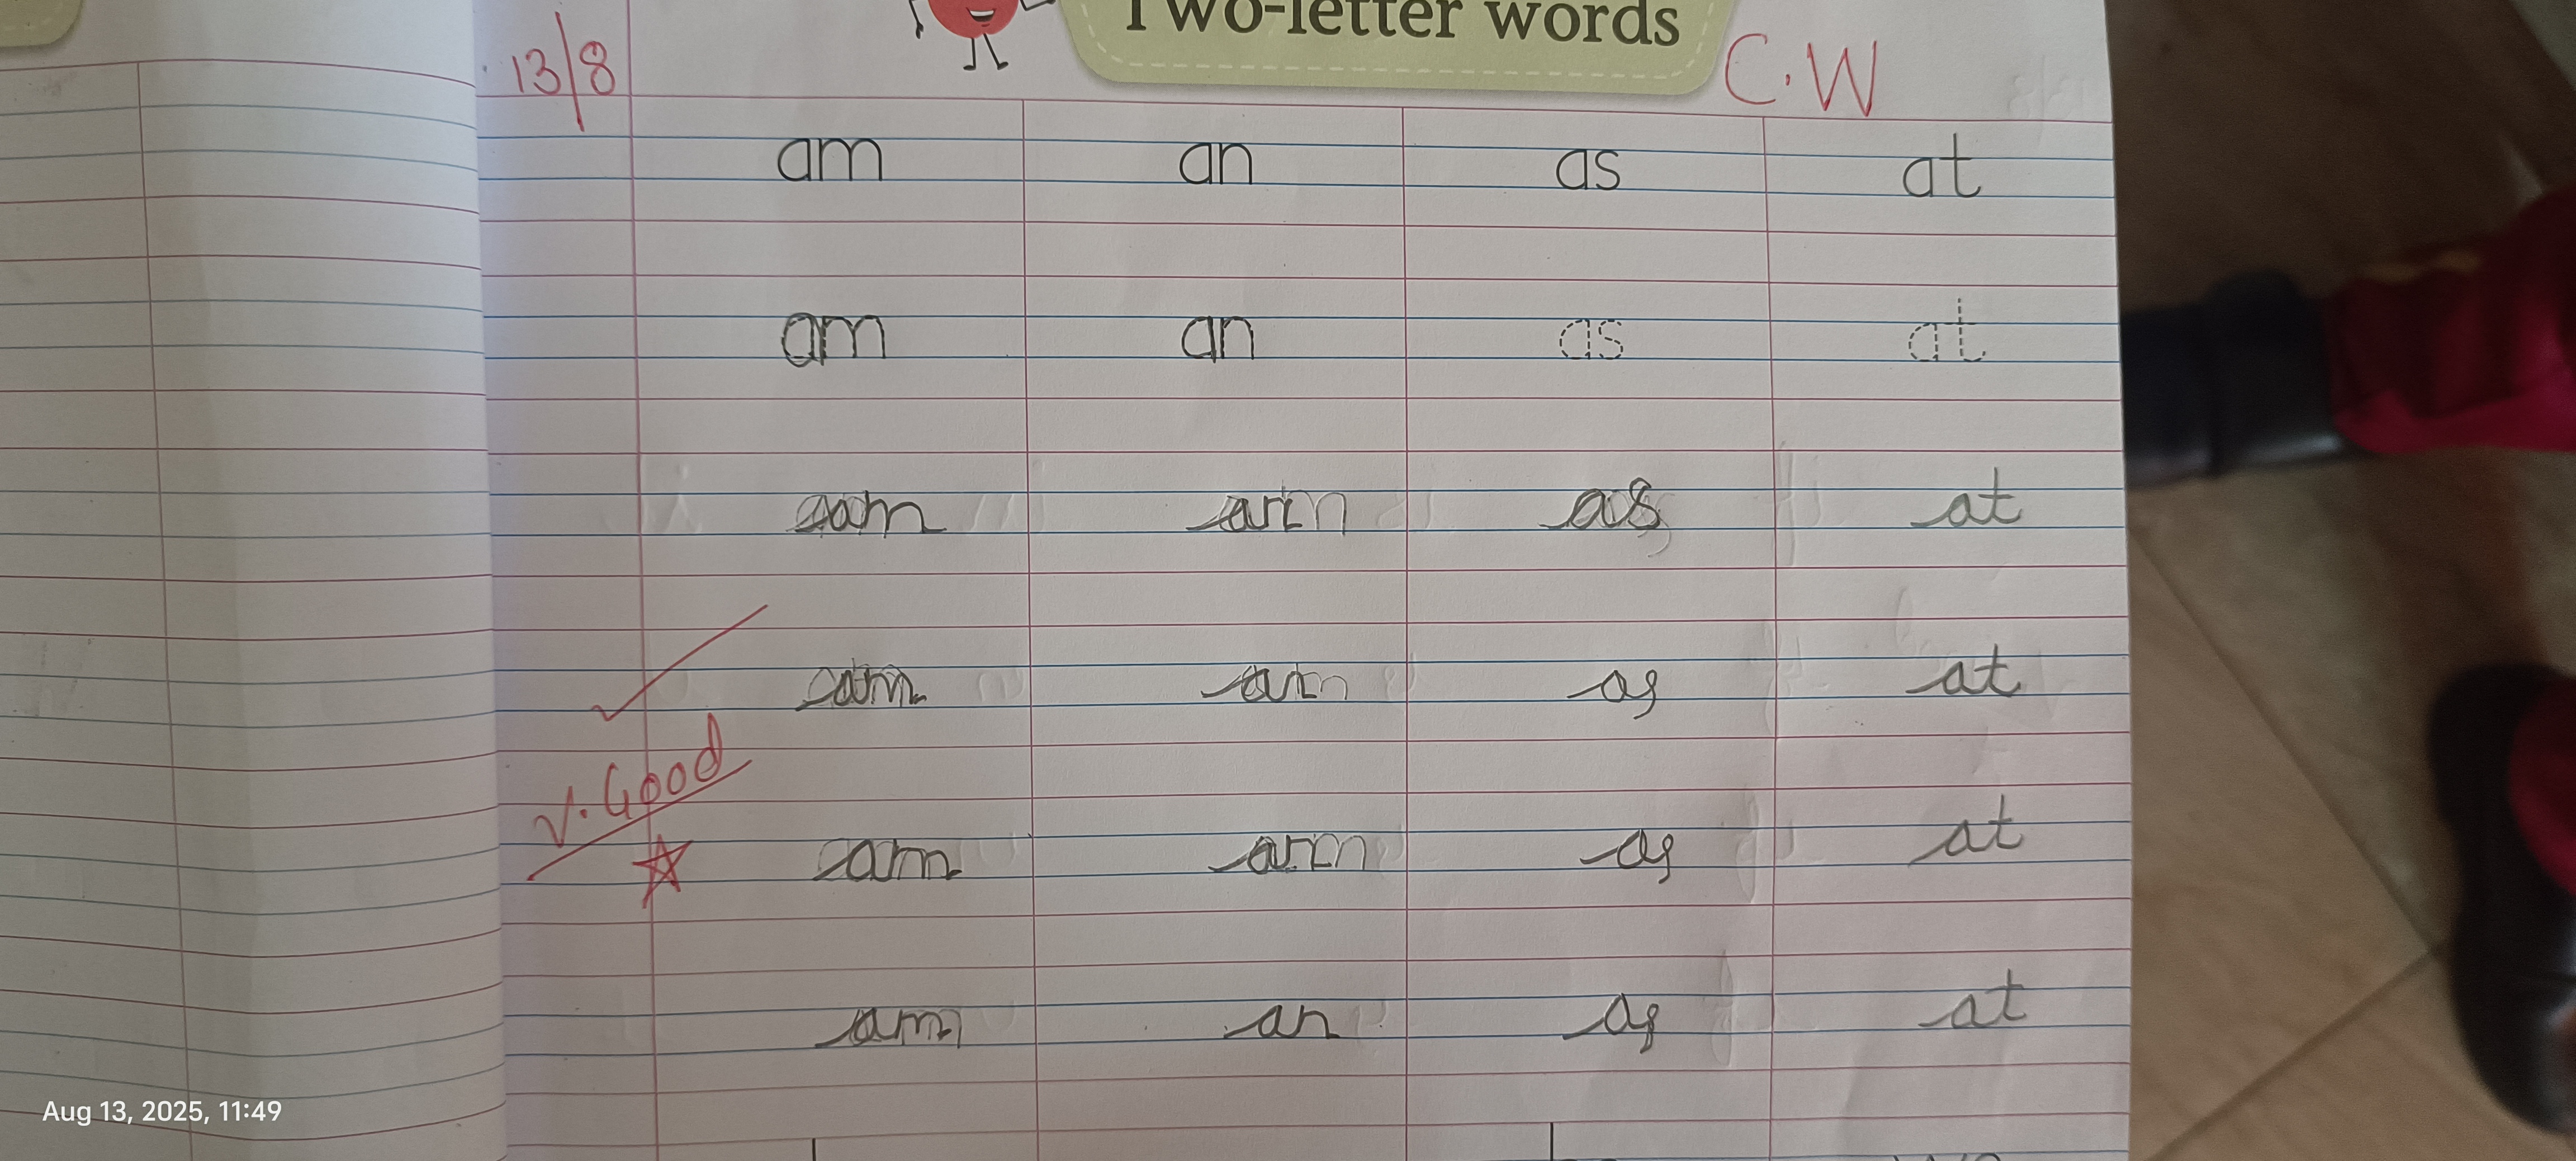 Two-letter words
13/8
C.W
am an as at
am an as at
am an as at
am an as at
V. Good
am an as at
am an as at
Aug 13, 2025, 11:49